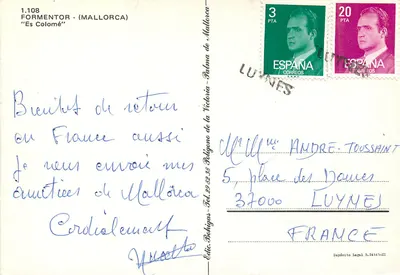 1.108
FORMENTOR - (MALLORCA)
"Es Colomé"
Bientot de retour
en France aussi
Je vous envoie mes
amitiées de Mallorca
Cordialement
Edic. Bohigas - Tel. 29 25 35 Polígono de la Victoria - Palma de Mallorca
3
PTA
ESPAÑA
CORREOS
20
PTA
ESPAÑA
CORREOS
LUYNES
LUYNES
Mr Mme ANDRE-TOUSSAINT
5, place des Dames
37000 LUYNES
FRANCE
Depósito Legal